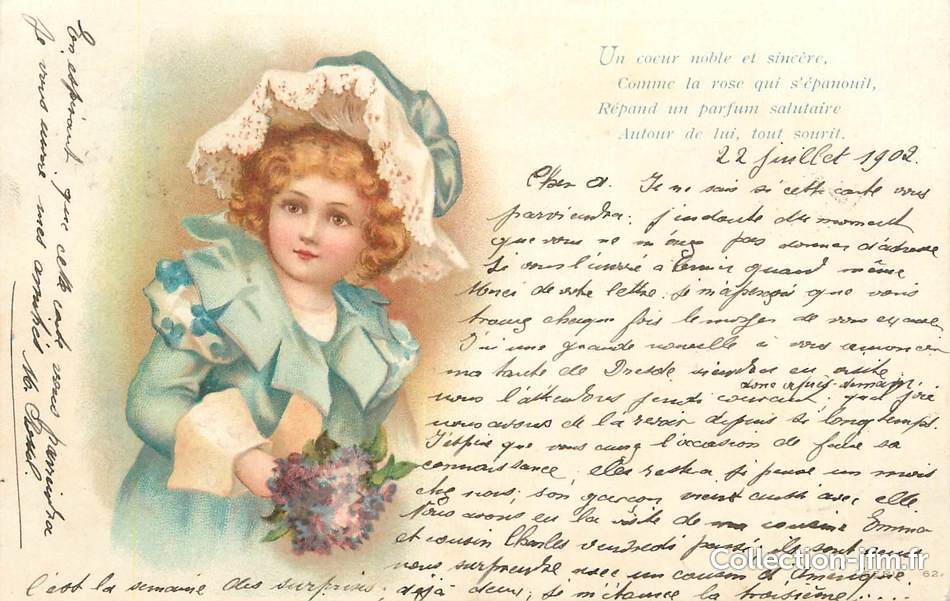 Un coeur noble et sincère,
Comme la rose qui s'épanouit,
Répand un parfum salutaire
Autour de lui, tout sourit.
22 juillet 1902.
Cher A. Je ne sais si cette carte vous
parviendra; j'en doute du moment
que vous ne m'avez pas donner d'adresse
Si vous l'envoie à quand même
Merci de votre lettre. Je m'aperçois que vous
trouvez chaque fois le moyen de vous
J'ai une grande nouvelle à vous annoncer
ma tante de Dresde viendra en visite
donc
nous l'attendons jeudi courant; quel joie
nous avons de la revoir depuis si longtemps.
J'espère que vous aurez l'occasion de faire sa
connaissance, elle restera je pense un mois
chez nous; son garçon vient aussi avec elle
Nous avons eu la visite de ma cousine Emma
et cousin Charles vendredi passé; ils sont venus
nous surprendre avec un cousin d'Amérique
c'est la semaine des surprises; déjà deux; je m'chance la troisième!....
En espérant que cette carte vous parviendra
Je vous envoie mes amitiés
Collection-jfm.fr
62.